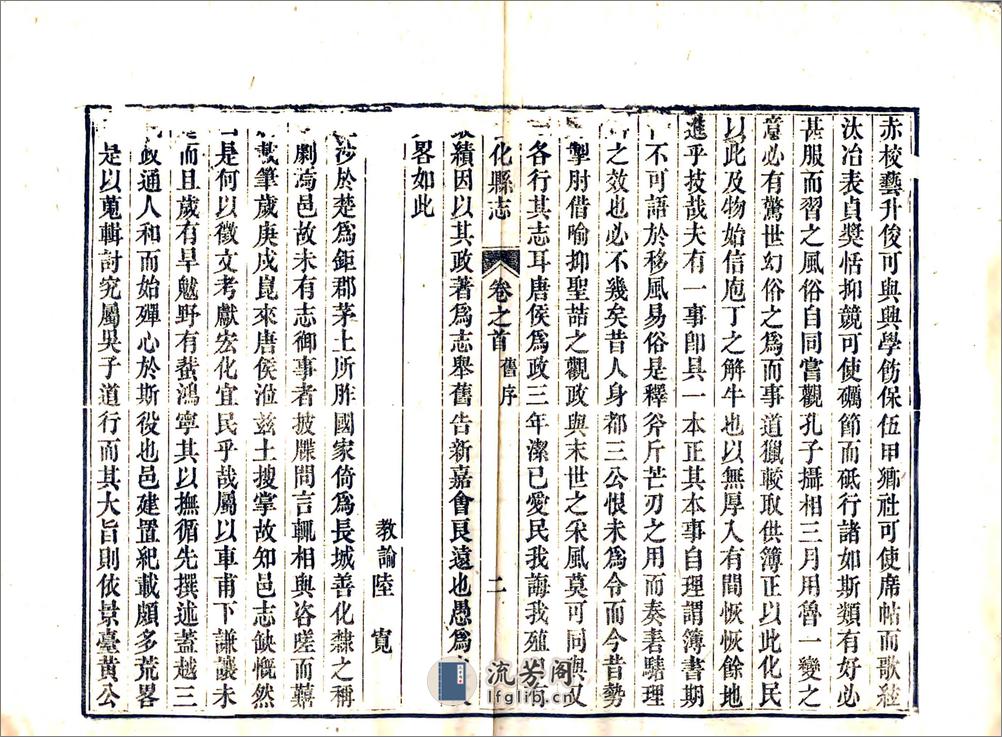 赤校藝升俊可與興學飭保伍甲鄉社可使席帖而歌絃
汰冶表貞獎恬抑競可使礪節而砥行諸如斯類有好必
甚服而習之風俗自同嘗觀孔子攝相三月用魯一變之
意必有驚世幻俗之為而事道獵較取供簿正以此化民
以此及物始信庖丁之解牛也以無厚入有間恢恢餘地
進乎技哉夫有一事即具一本正其本事自理謂簿書期
不可語於移風易俗是釋斧斤芒刃之用而奏砉驍理
之效也必不幾矣昔人身都三公恨未為令而今昔勢
掣肘借喻抑聖喆之觀政與末世之采風莫可同與又
各行其志耳唐侯為政三年潔已愛民我誨我殖
化縣志 卷之首 舊序 二
績因以其政著為志舉舊告新嘉會良遠也愚為
畧如此
教諭陸 寬
涉於楚為鉅郡茅土所胙國家倚為長城善化隸之稱
劇瀉邑故未有志御事者披牒問言輒相與咨嗟而囏
載筆歲庚戍崑來唐侯涖茲土搜掌故知邑志缺慨然
是何以徵文考獻宏化宜民乎哉屬以車甫下謙讓未
而且歲有旱魃野有蜚鴻寧其以撫循先撰述蓋越三
政通人和而始殫心於斯役也邑建置紀載頗多荒畧
是以蒐輯討究屬吳子道行而其大旨則依景臺黃公
流芳阁
lfglib.cn